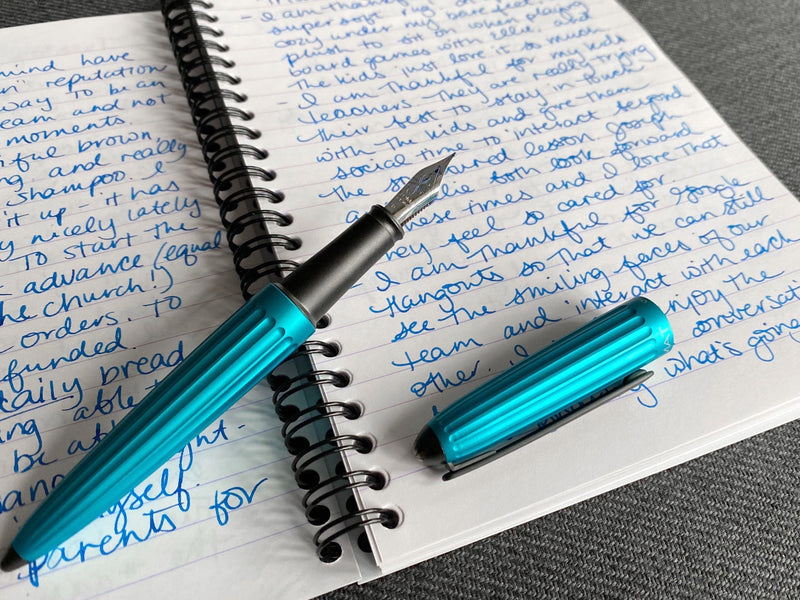 mind have
reputation
way to be an
team and not
moments.
brown,
ng and really
shampoo. I
it up it has
y nicely lately
To start the
advance (equal
the church!)
orders. To
funded.
daily bread
ing able t
be ab
myself.
parents for
- I am thankful
supersoft
cozy under my
plush to sit on when playing
board games with Ellie and
The kids just love it so much
- I am thankful for my kids
teachers. They are really trying
their best to stay in touch
with the kids and give them
social time to interact beyond
the lesson. Joseph
lie both look forward
those times and I love that
They feel so cared for.
- I am thankful for google
Hangouts so that we can still
see the smiling faces of our
team and interact with each
other. I enjoy the
conversati
what's going